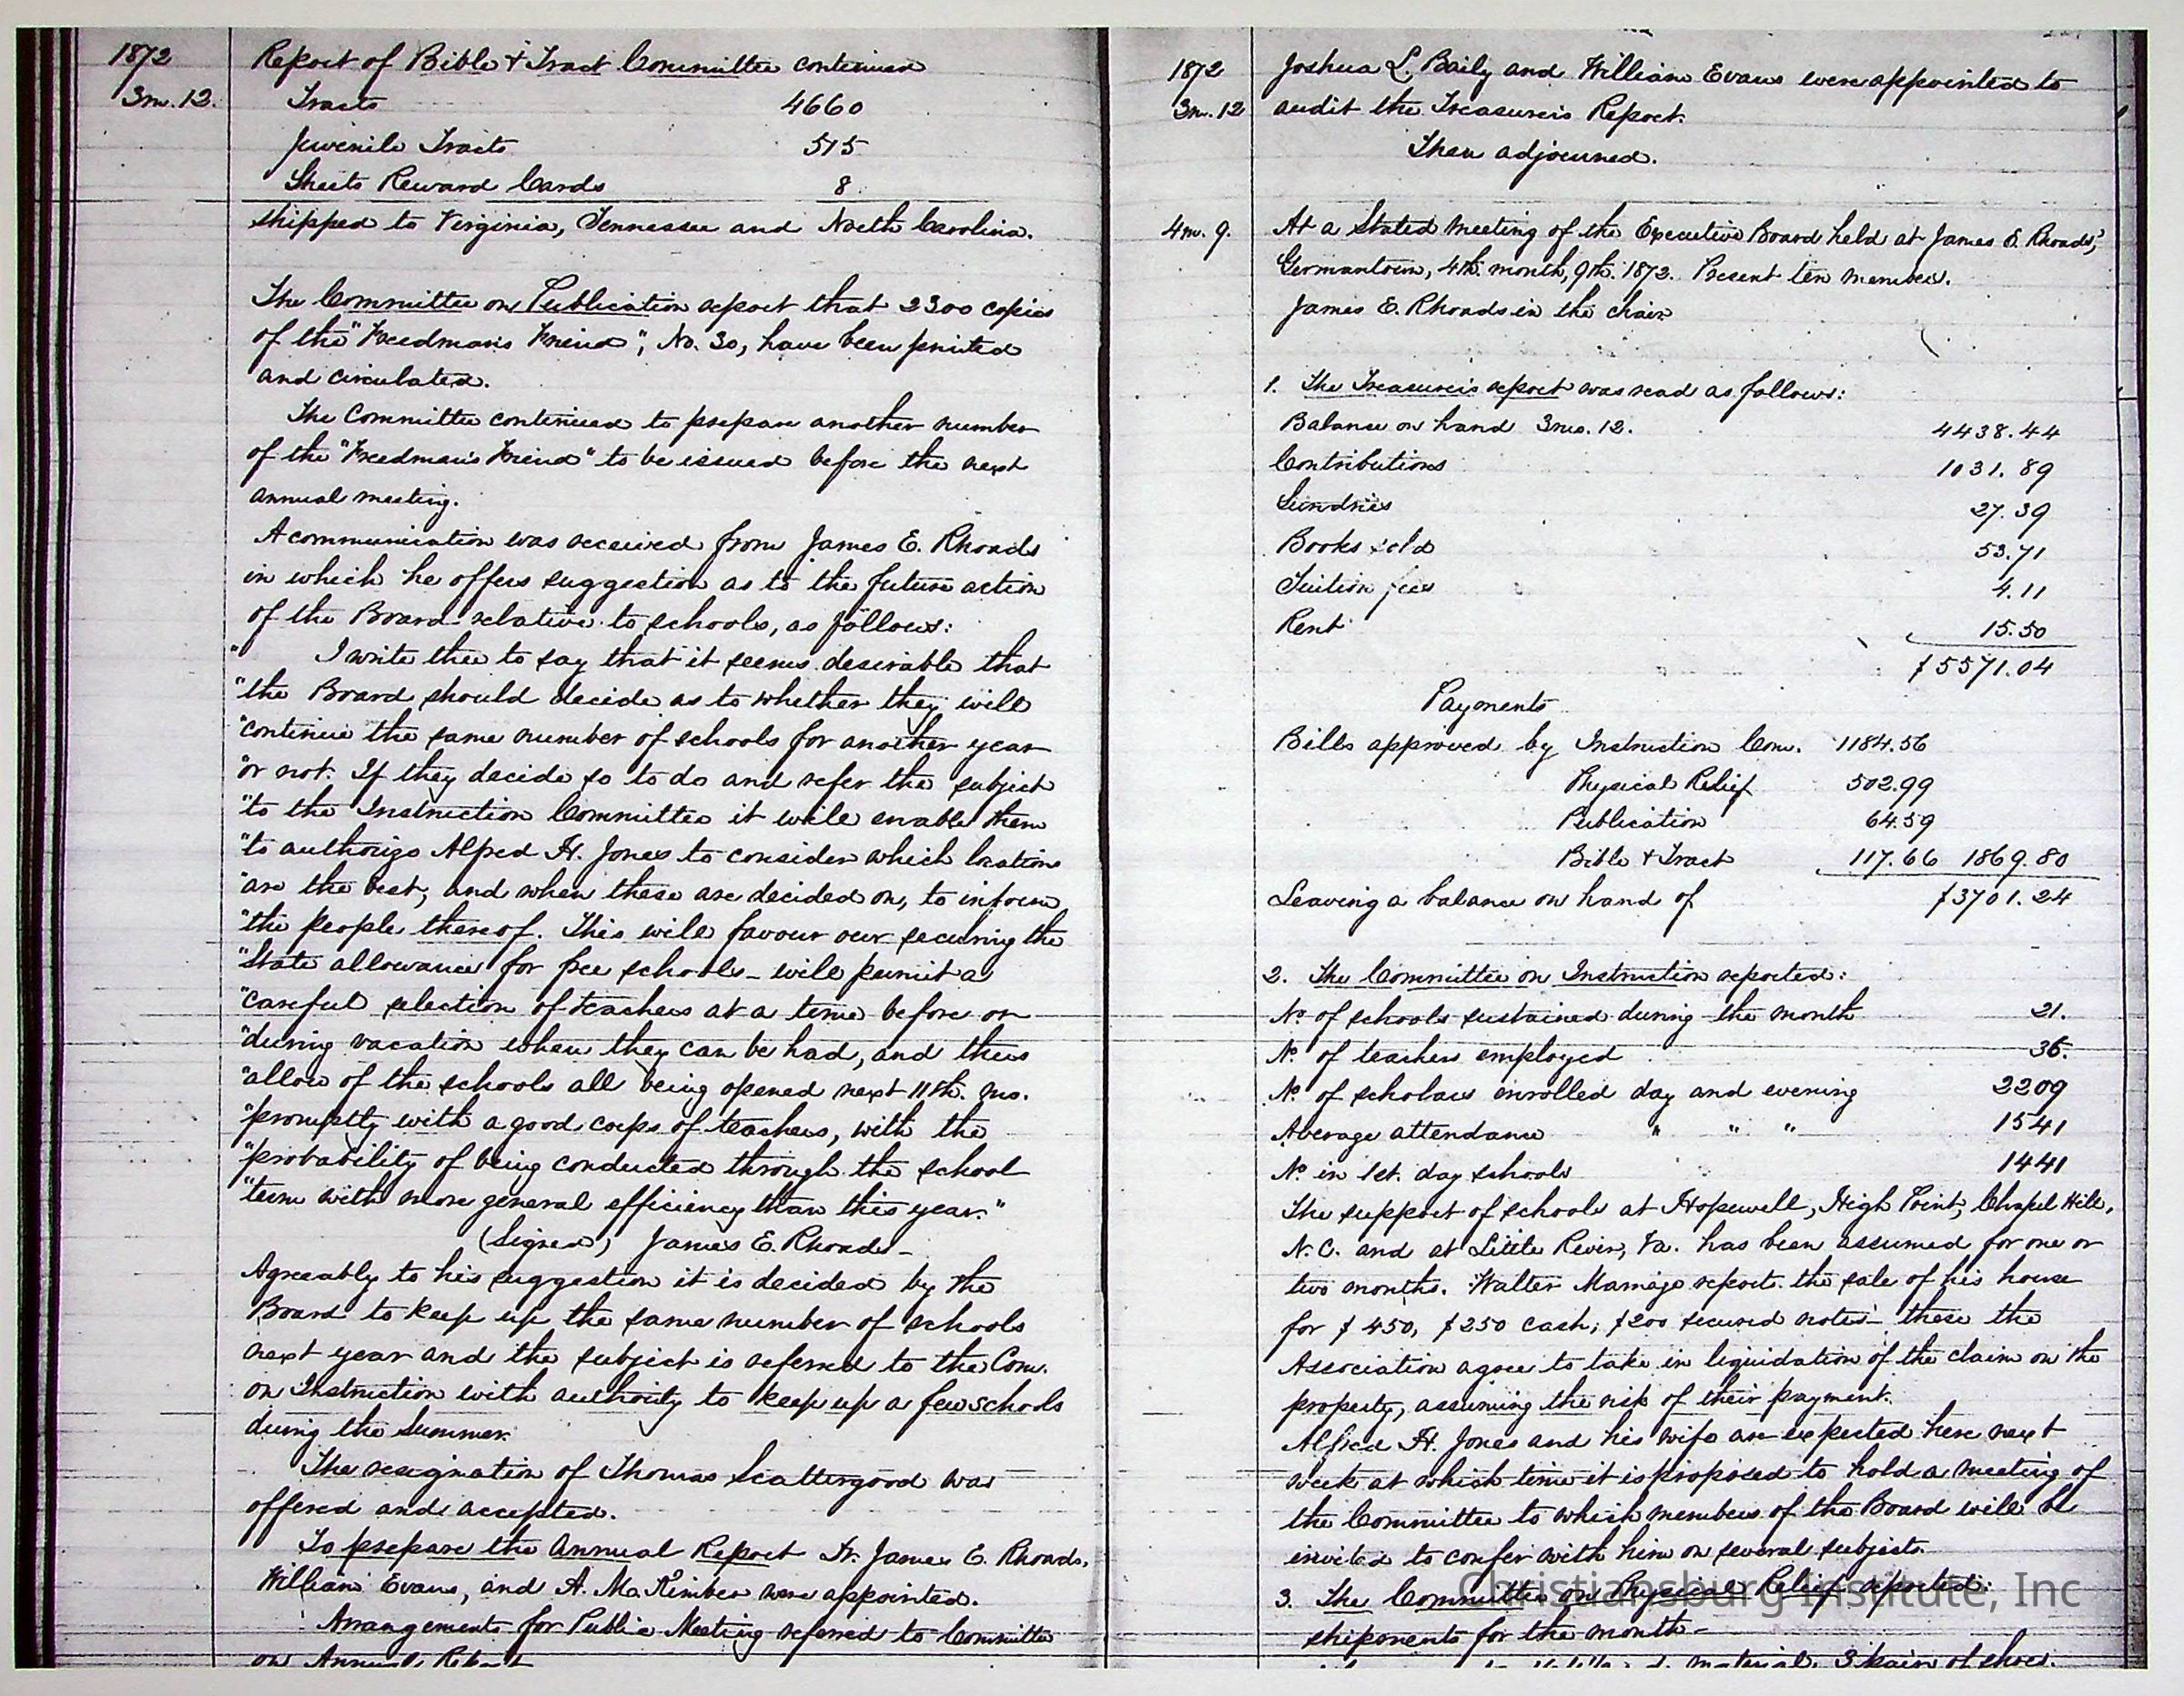 1872
3m. 12.
Report of Bible & Tract Committee continued
Tracts 4660
Juvenile Tracts 515
Sheets Reward Cards 8
shipped to Virginia, Tennessee and North Carolina.
The Committee on Publication report that 2300 copies
of the "Freedman's Friend", No. 30, have been printed
and circulated.
The Committee continued to prepare another number
of the "Freedman's Friend" to be issued before the next
annual meeting.
A communication was received from James E. Rhoads
in which he offers suggestion as to the future action
of the Board relative to schools, as follows:
" I write thee to say that it seems desirable that
"the Board should decide as to whether they will
"continue the same number of schools for another year
"or not. If they decide so to do and refer the subject
"to the Instruction Committee it will enable them
"to authorize Alfred H. Jones to consider which locations
"are the best, and when these are decided on, to inform
"the people thereof. This will favour our securing the
"State allowance for free schools – will permit a
"careful selection of teachers at a time before or
"during vacation when they can be had, and thus
"allow of the schools all being opened next 11th. mo.
"promptly with a good corps of teachers, with the
"probability of being conducted through the school
"term with more general efficiency than this year."
(Signed) James E. Rhoads –
Agreeably to his suggestion it is decided by the
Board to keep up the same number of schools
next year and the subject is referred to the Com.
on Instruction with authority to keep up a few schools
during the Summer.
The resignation of Thomas Scattergood was
offered and accepted.
To prepare the Annual Report Dr. James E. Rhoads,
William Evans, and A. M. Kimber were appointed.
Arrangements for Public Meeting referred to Committee
on Annual Report
1872
3m. 12
Joshua L. Baily and William Evans were appointed to
audit the Treasurer's Report.
Then adjourned.
4m. 9.
At a Stated Meeting of the Executive Board held at James E. Rhoads',
Germantown, 4th. month, 9th. 1872. Present ten members.
James E. Rhoads in the chair
1. The Treasurer's report was read as follows:
Balance on hand 3mo. 12. 4438.44
Contributions 1031.89
Sundries 27.39
Books sold 53.71
Tuition fees 4.11
Rent 15.50
$5571.04
Payments
Bills approved by Instruction Com. 1184.56
Physical Relief 502.99
Publication 64.59
Bible & Tract 117.66 1869.80
Leaving a balance on hand of $3701.24
2. The Committee on Instruction reported:
No. of schools sustained during the month 21.
No. of teachers employed 36.
No. of scholars enrolled day and evening 2209
Average attendance " " " 1541
No. in 1st. day schools 1441
The support of schools at Hopewell, High Point, Chapel Hill,
N.C. and at Little River, Va. has been assumed for one or
two months. Walter Marriage reports the sale of his house
for $450, $250 cash; $200 secured notes – these the
Association agree to take in liquidation of the claim on the
property, assuming the risk of their payment.
Alfred H. Jones and his wife are expected here next
week at which time it is proposed to hold a meeting of
the Committee to which members of the Board will be
invited to confer with him on several subjects.
3. The Committee on Physical Relief reported:
shipments for the month –
material, 3 pair of shoes.
Christiansburg Institute, Inc